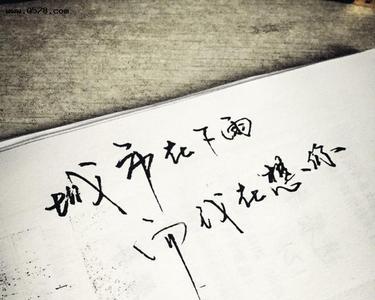 www.0578.com
城市在下雨
而我在想你